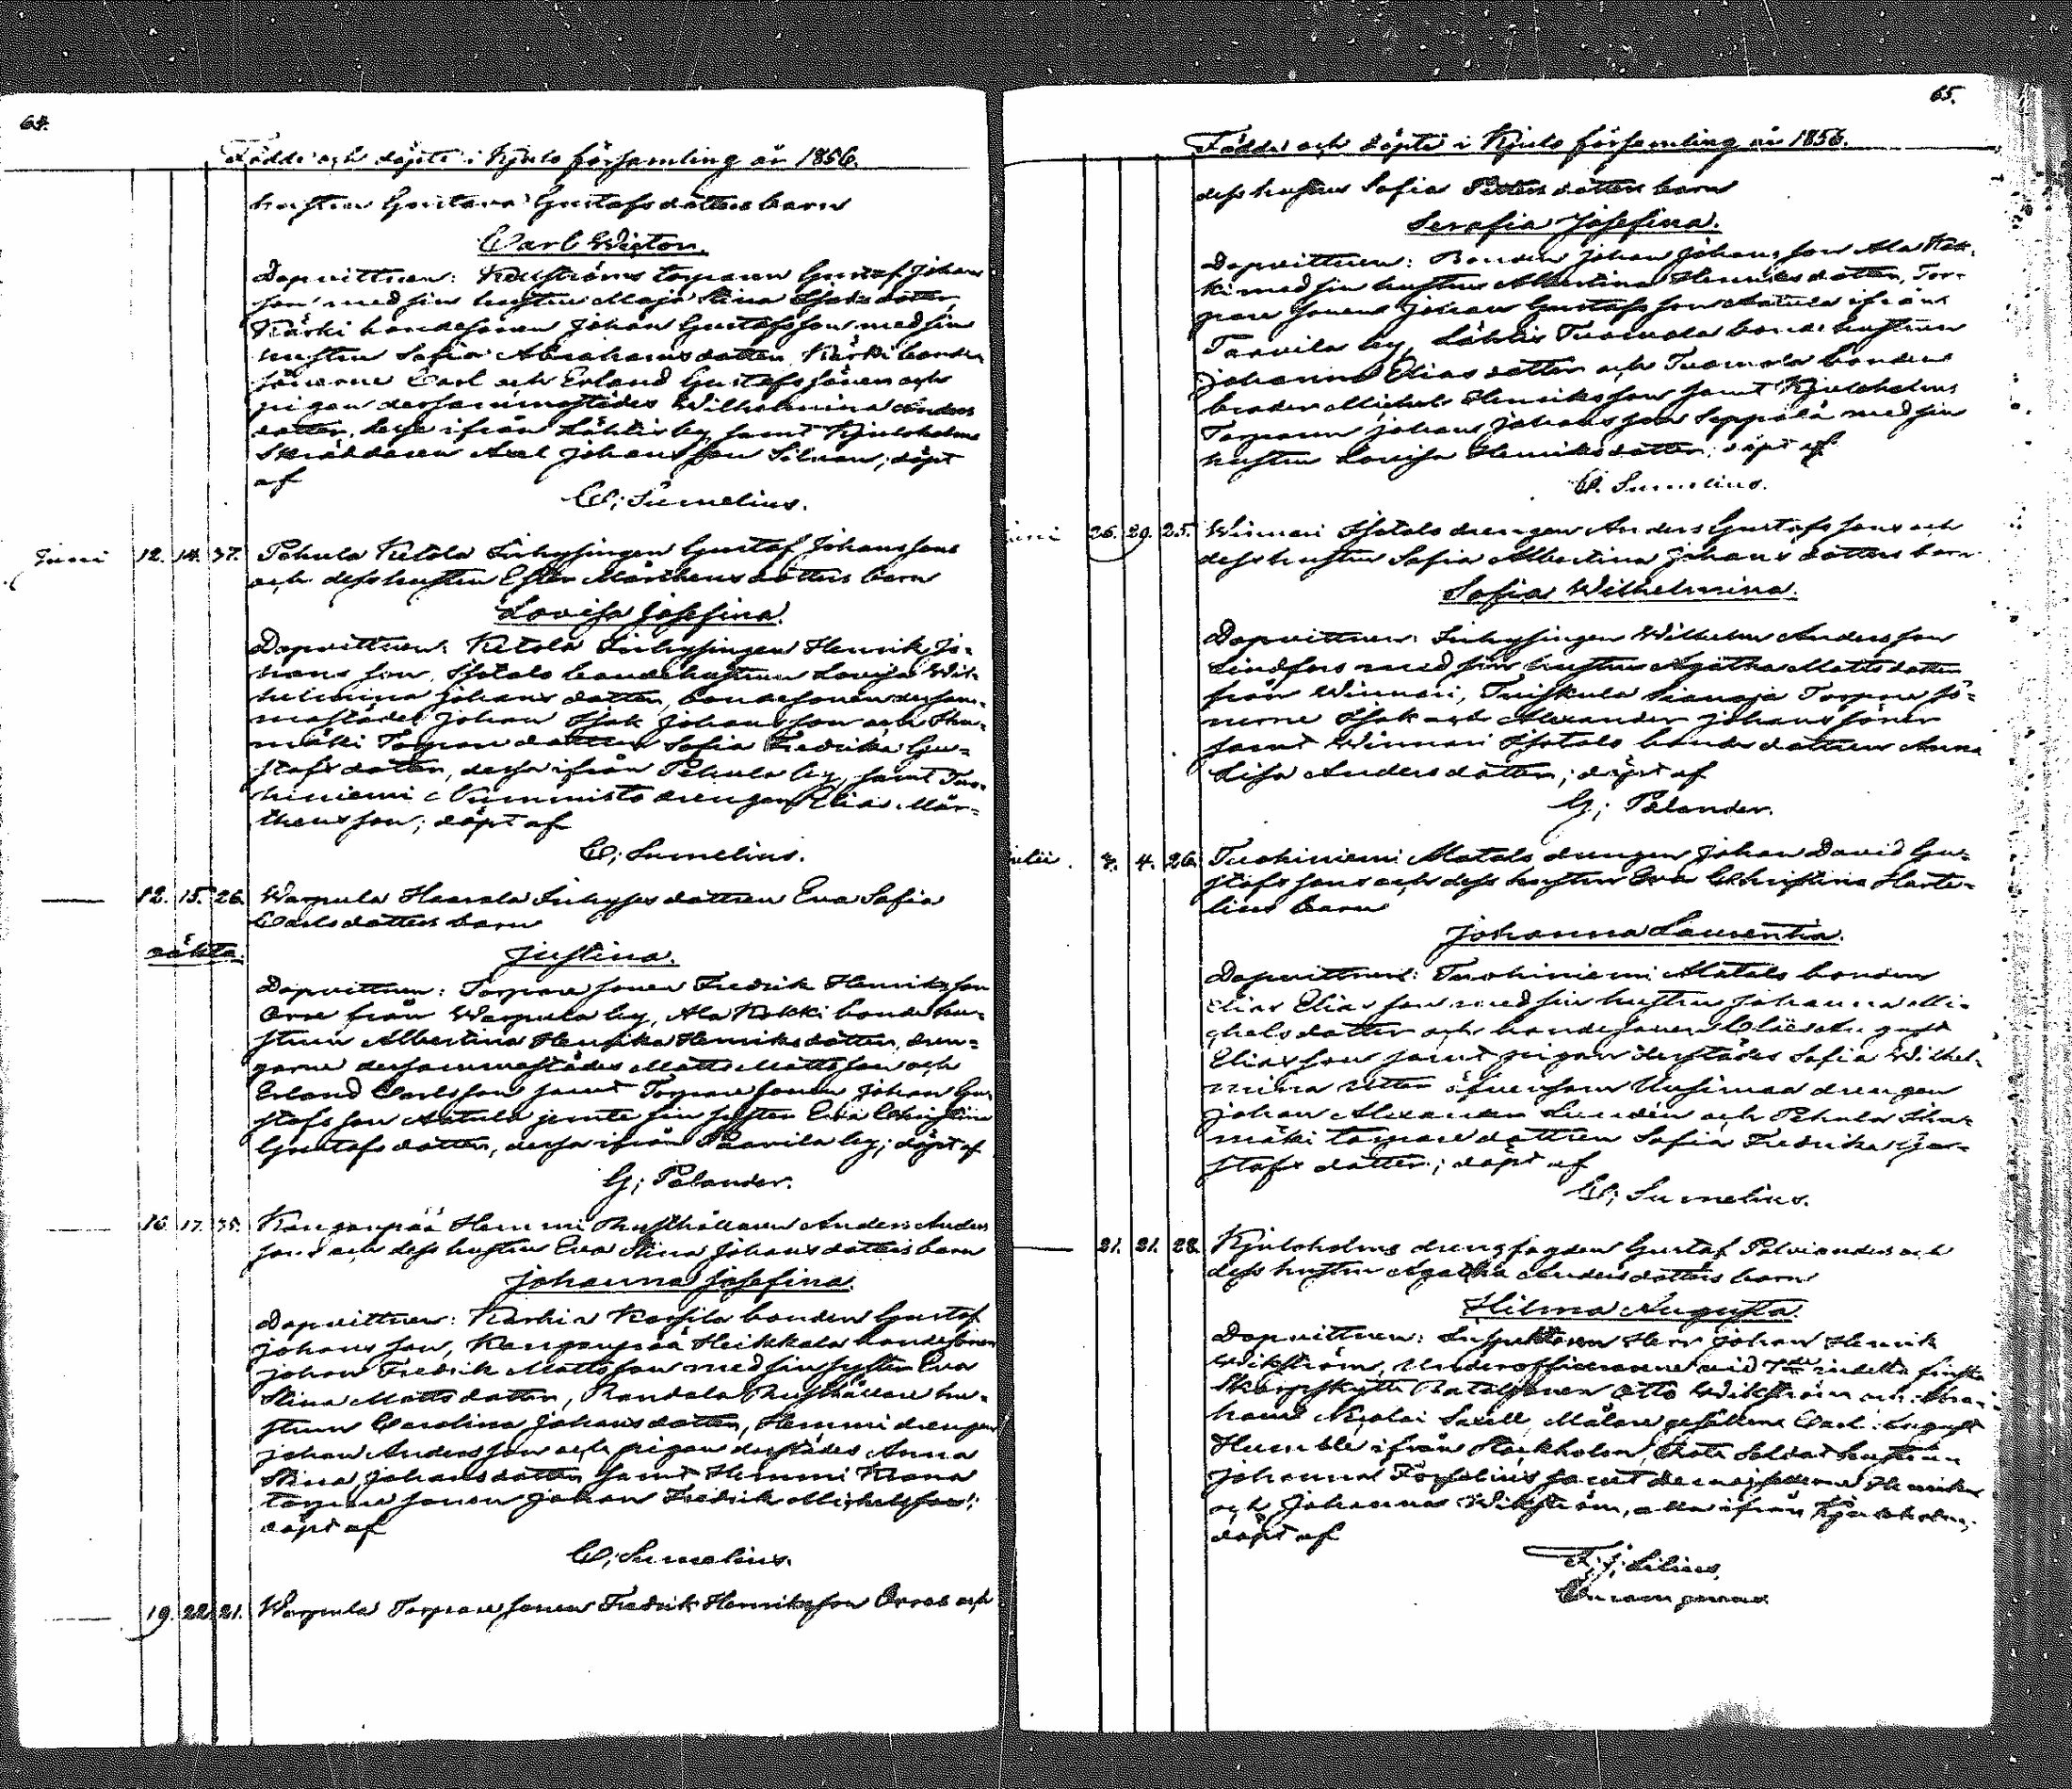 64.
Födde och döpte i Kjulo församling år 1856.
hustru Gustava Gustafsdotters barn
Carl Wigton.
Dopvittnen: torparen Gustaf Johans
son med sin hustru Maja Stina Isaksdotter
Kärki bondesonen Johan Gustafsson med sin
hustru Sofia Abrahamsdotter, Kärki bonde
sönerne Carl och Erland Gustafs söner och
pigan dersammastädes Wilhelmina Anders
dotter, desse ifrån Lähtis by, samt Kjuloholms
Skräddaren Axel Johansson Silvan; döpt
af
C; Sumelius.
Juni 12. 14. 37. Pehula Ketola Inhysingen Gustaf Johanssons
och dess hustru Ester Märthensdotters barn
Lovisa Josefina.
Dopvittnen: Ketola Inhysingen Henrik Jo-
hans son, Isotalo bondehustrun Lovisa Wil-
helmina Johansdotter, bondesonen dersam-
mastädes Johan Isak Johansson och Iha-
mäki Torpare dottren Sofia Fredrika Gu-
stafsdotter, dessa ifrån Pehula by, samt Tuo-
hiniemi Nummisto drengen Elias Mär-
thensson; döpt af
C; Sumelius.
12. 15. 26. Warpula Haavala Inhyses dottren Eva Sofia
Carlsdotters barn
oäkta. Justina.
Dopvittnen: Torpare sonen Fredrik Henriksson
Orre från Warpula by, Ala Kokki bonde hu-
strun Albertina Henrika Henriksdotter, dren-
garne dersammastädes Matts Mattsson och
Erland Carlsson samt Torpare sonen Johan Gu-
stafsson Antula jemte sin syster Eva Christina
Gustafsdotter, dessa ifrån Paavila by; döpt af
G; Palander.
16. 17. 35. Kanganpää Hemmi Rusthållaren Anders Anders
sons och dess hustru Eva Stina Johansdotters barn
Johanna Josefina.
Dopvittnen: Karhia bonden Gustaf
Johansson, Kanganpää Heikkala bondesonen
Johan Fredrik Mattsson med sin syster Eva
Stina Mattsdotter, Randala Rusthållare hu-
strun Carolina Johansdotter, Hemmi drengen
Johan Andersson och pigan derstädes Anna
Stina Johansdotter samt Hemmi
torpare sonen Johan Fredrik Michelsson;
döpt af
C; Sumelius.
19. 22. 21. Warpula Torpare sonen Fredrik Henriksson Orres och
65.
Födde och döpte i Kjulo församling år 1856.
dess hustrus Sofia Petters dotters barn
Serafia Josefina.
Dopvittnen: Bonden Johan Johansson Ala Kok-
ki med sin hustru Albertina Henriksdotter, Tor-
pare sonen Johan Gustafsson Antula ifrån
Paavila by, Lähtis Tuomola bonde hustrun
Johanna Eliasdotter och Tuomola bondens
broder Michel Henriksson samt Kjuloholms
Torparen Johan Johansson Seppälä med sin
hustru Lovisa Henriksdotter; döpt af
C. Sumelius.
Juni 26. 29. 25. Winnari Isotalo drengen Anders Gustafssons och
dess hustrus Sofia Albertina Johansdotters barn
Sofia Wilhelmina.
Dopvittnen: Inhysingen Wilhelm Andersson
Lindfors med sin hustru Agatha Mattsdotter
från Winnari, Tuiskula Torpare sö-
nerne Isak och Alexander Johans söner
samt Winnari Isotalo bonde dottren Anna
Lisa Andersdotter; döpt af
G; Palander.
Julii. 3. 4. 26. Tuohiniemi Matals drengen Johan David Gu-
stafssons och dess hustru Eva Christina Harte-
lius barn
Johanna Laurentia.
Dopvittnen: Tuohiniemi Matals bonden
Elias Eliasson med sin hustru Johanna Mi-
chelsdotter och bondesonen August
Eliasson samt pigan derstädes Sofia Wilhel-
mina äfvensom Uusimaa drengen
Johan Alexander Lundén och Pehula Iha-
mäki torpare dottren Sofia Fredrika Gu-
stafsdotter; döpt af
C; Sumelius.
21. 21. 28. Kjuloholms drengfogden Gustaf Palvianders och
dess hustru Agatha Andersdotters barn
Hilma Augusta.
Dopvittnen: Inspektoren Herr Johan Henrik
Wikström, Underofficerarne vid 7de indelta finska
Skarpskytte Bataljonen Otto Wikström och Abra-
ham Nicolai Saxell, Målare gesällen Carl August
Humble ifrån Stockholm, Soldat hustrun
Johanna Forselius samt demoisellerne Henrika
och Johanna Wikström, alla ifrån Kjuloholm,
döpt af
F; J; Lilius,